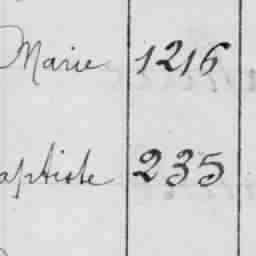 Marie 1216
aptiste 235